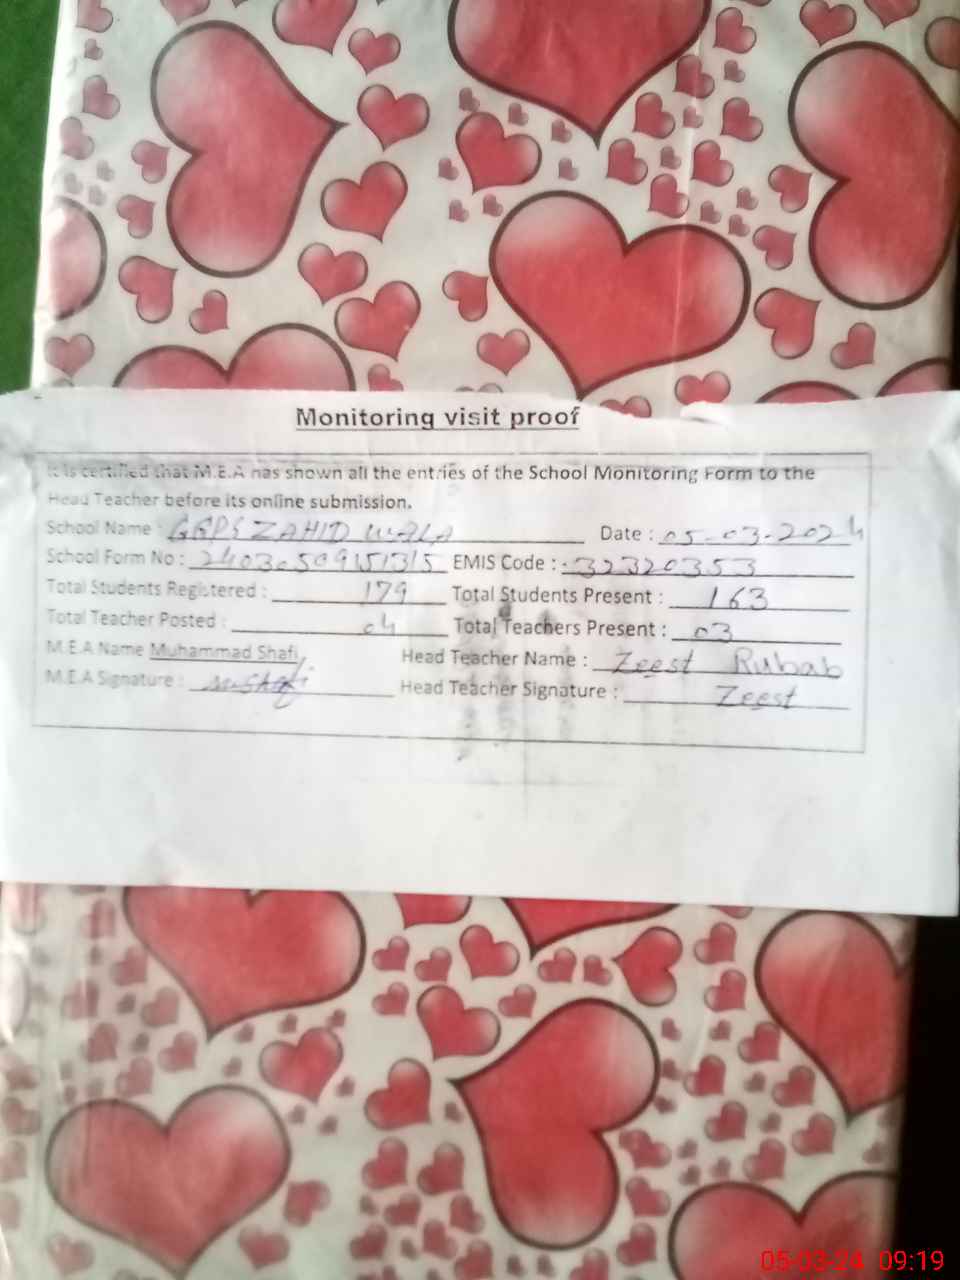 Monitoring visit proof
It is certified that M.E.A has shown all the entries of the School Monitoring Form to the
Head Teacher before its online submission.
School Name : GGPS ZAHID WALA Date : 05-03-2024
School Form No : 24030509151315 EMIS Code : 32320353
Total Students Registered : 179 Total Students Present : 163
Total Teacher Posted : 04 Total Teachers Present : 03
M.E.A Name Muhammad Shafi Head Teacher Name : Zeest Rubab
M.E.A Signature : M.Shafi Head Teacher Signature : Zeest
05-03-24 09:19